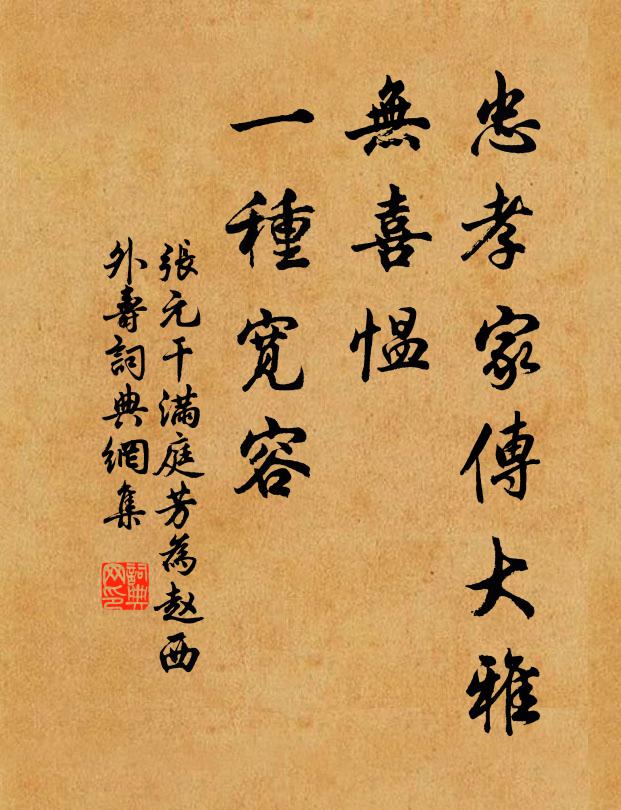 忠孝家傳大雅
無喜愠
一種寛容
張元干滿庭芳為赵西
外壽詞典網集
詞典网印